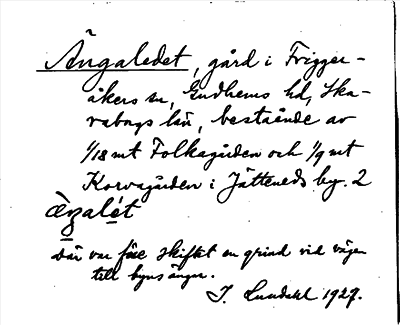 Ängaledet, gård i Frigger-
åkers sn, Gudhems hd, Ska-
raborgs län, bestående av
1/18 mt Folkagården och 1/9 mt
Korvagården i Jätteneds by. 2
ængalét
Där var före skiftet en grind vid vägen
till byns ängar.
I. Lundahl 1927.